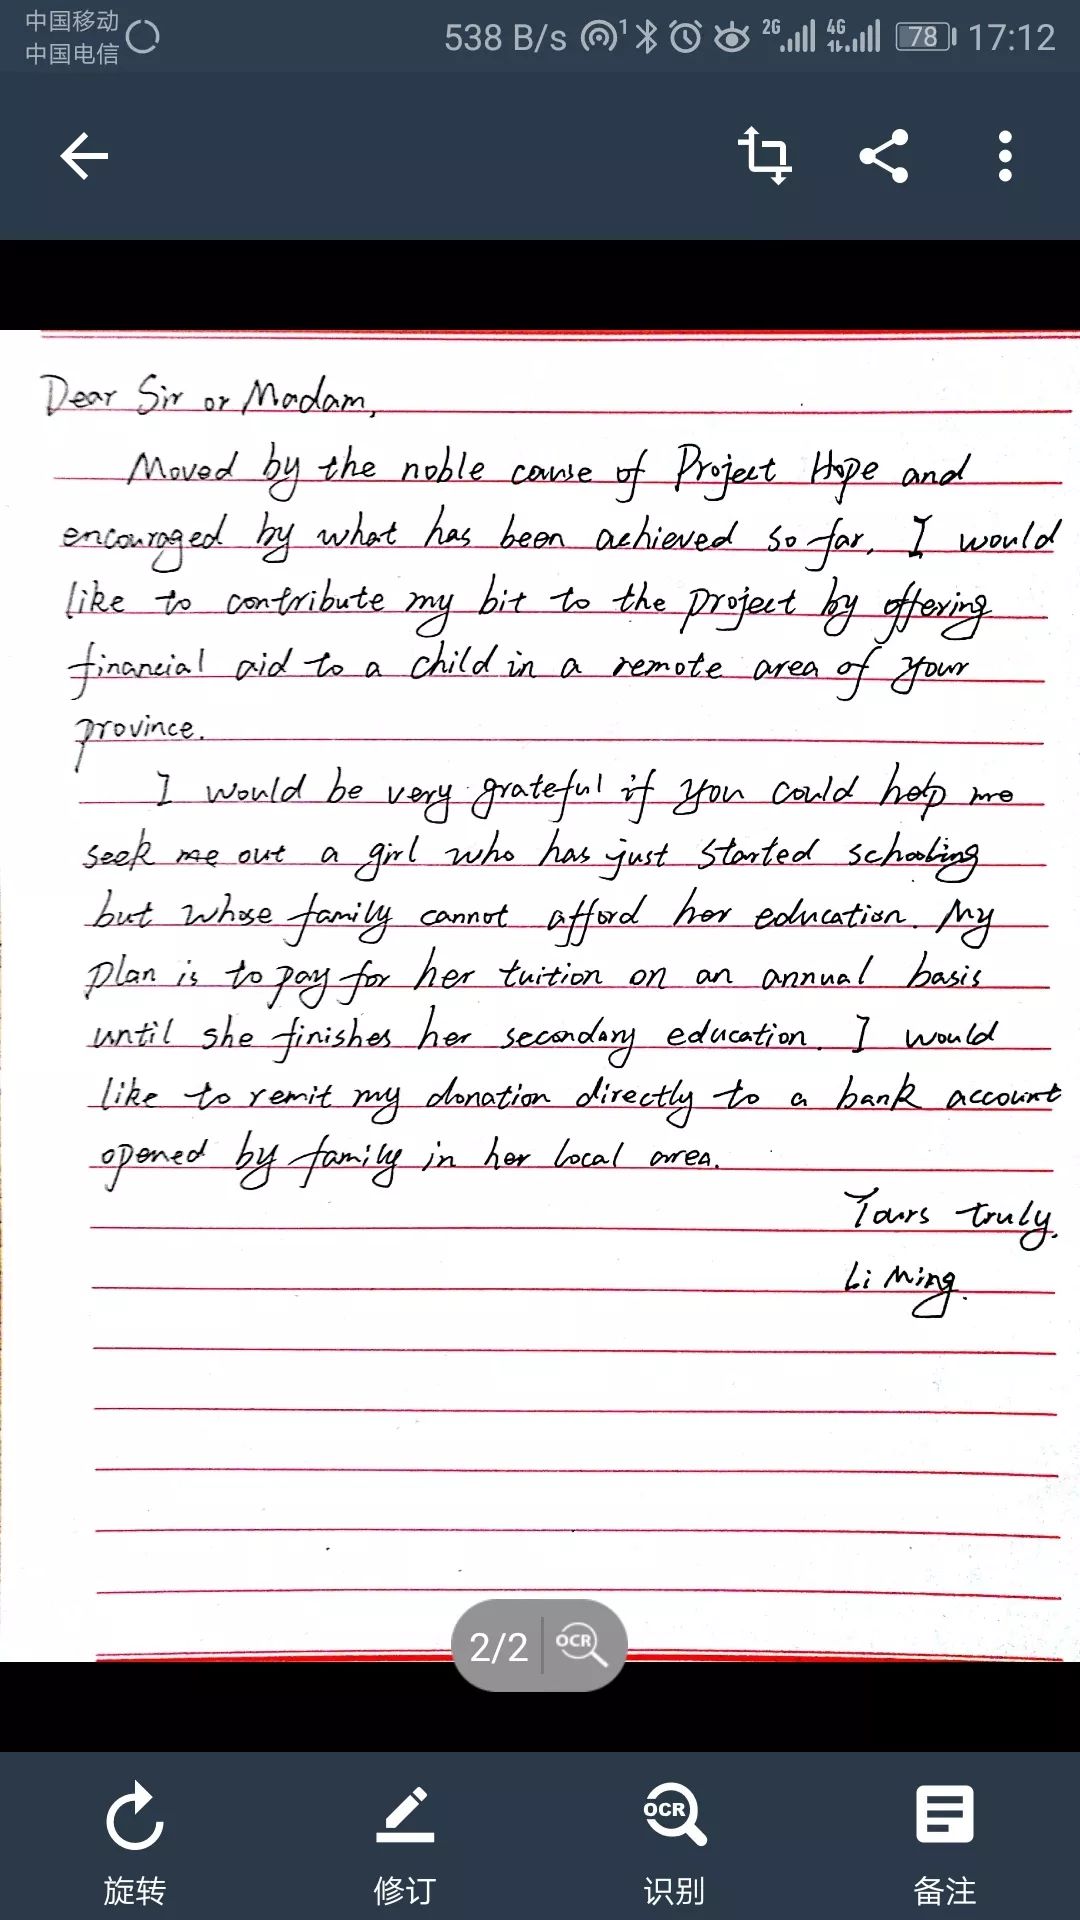 中国移动
中国电信
538 B/s 1 2G 4G 78 17:12
Dear Sir or Madam,
Moved by the noble cause of Project Hope and
encouraged by what has been achieved so far, I would
like to contribute my bit to the project by offering
financial aid to a child in a remote area of your
province.
I would be very grateful if you could help me
seek me out a girl who has just started schooling
but whose family cannot afford her education. My
plan is to pay for her tuition on an annual basis
until she finishes her secondary education. I would
like to remit my donation directly to a bank account
opened by family in her local area.
Yours truly.
Li Ming.
2/2 OCR
OCR
旋转 修订 识别 备注